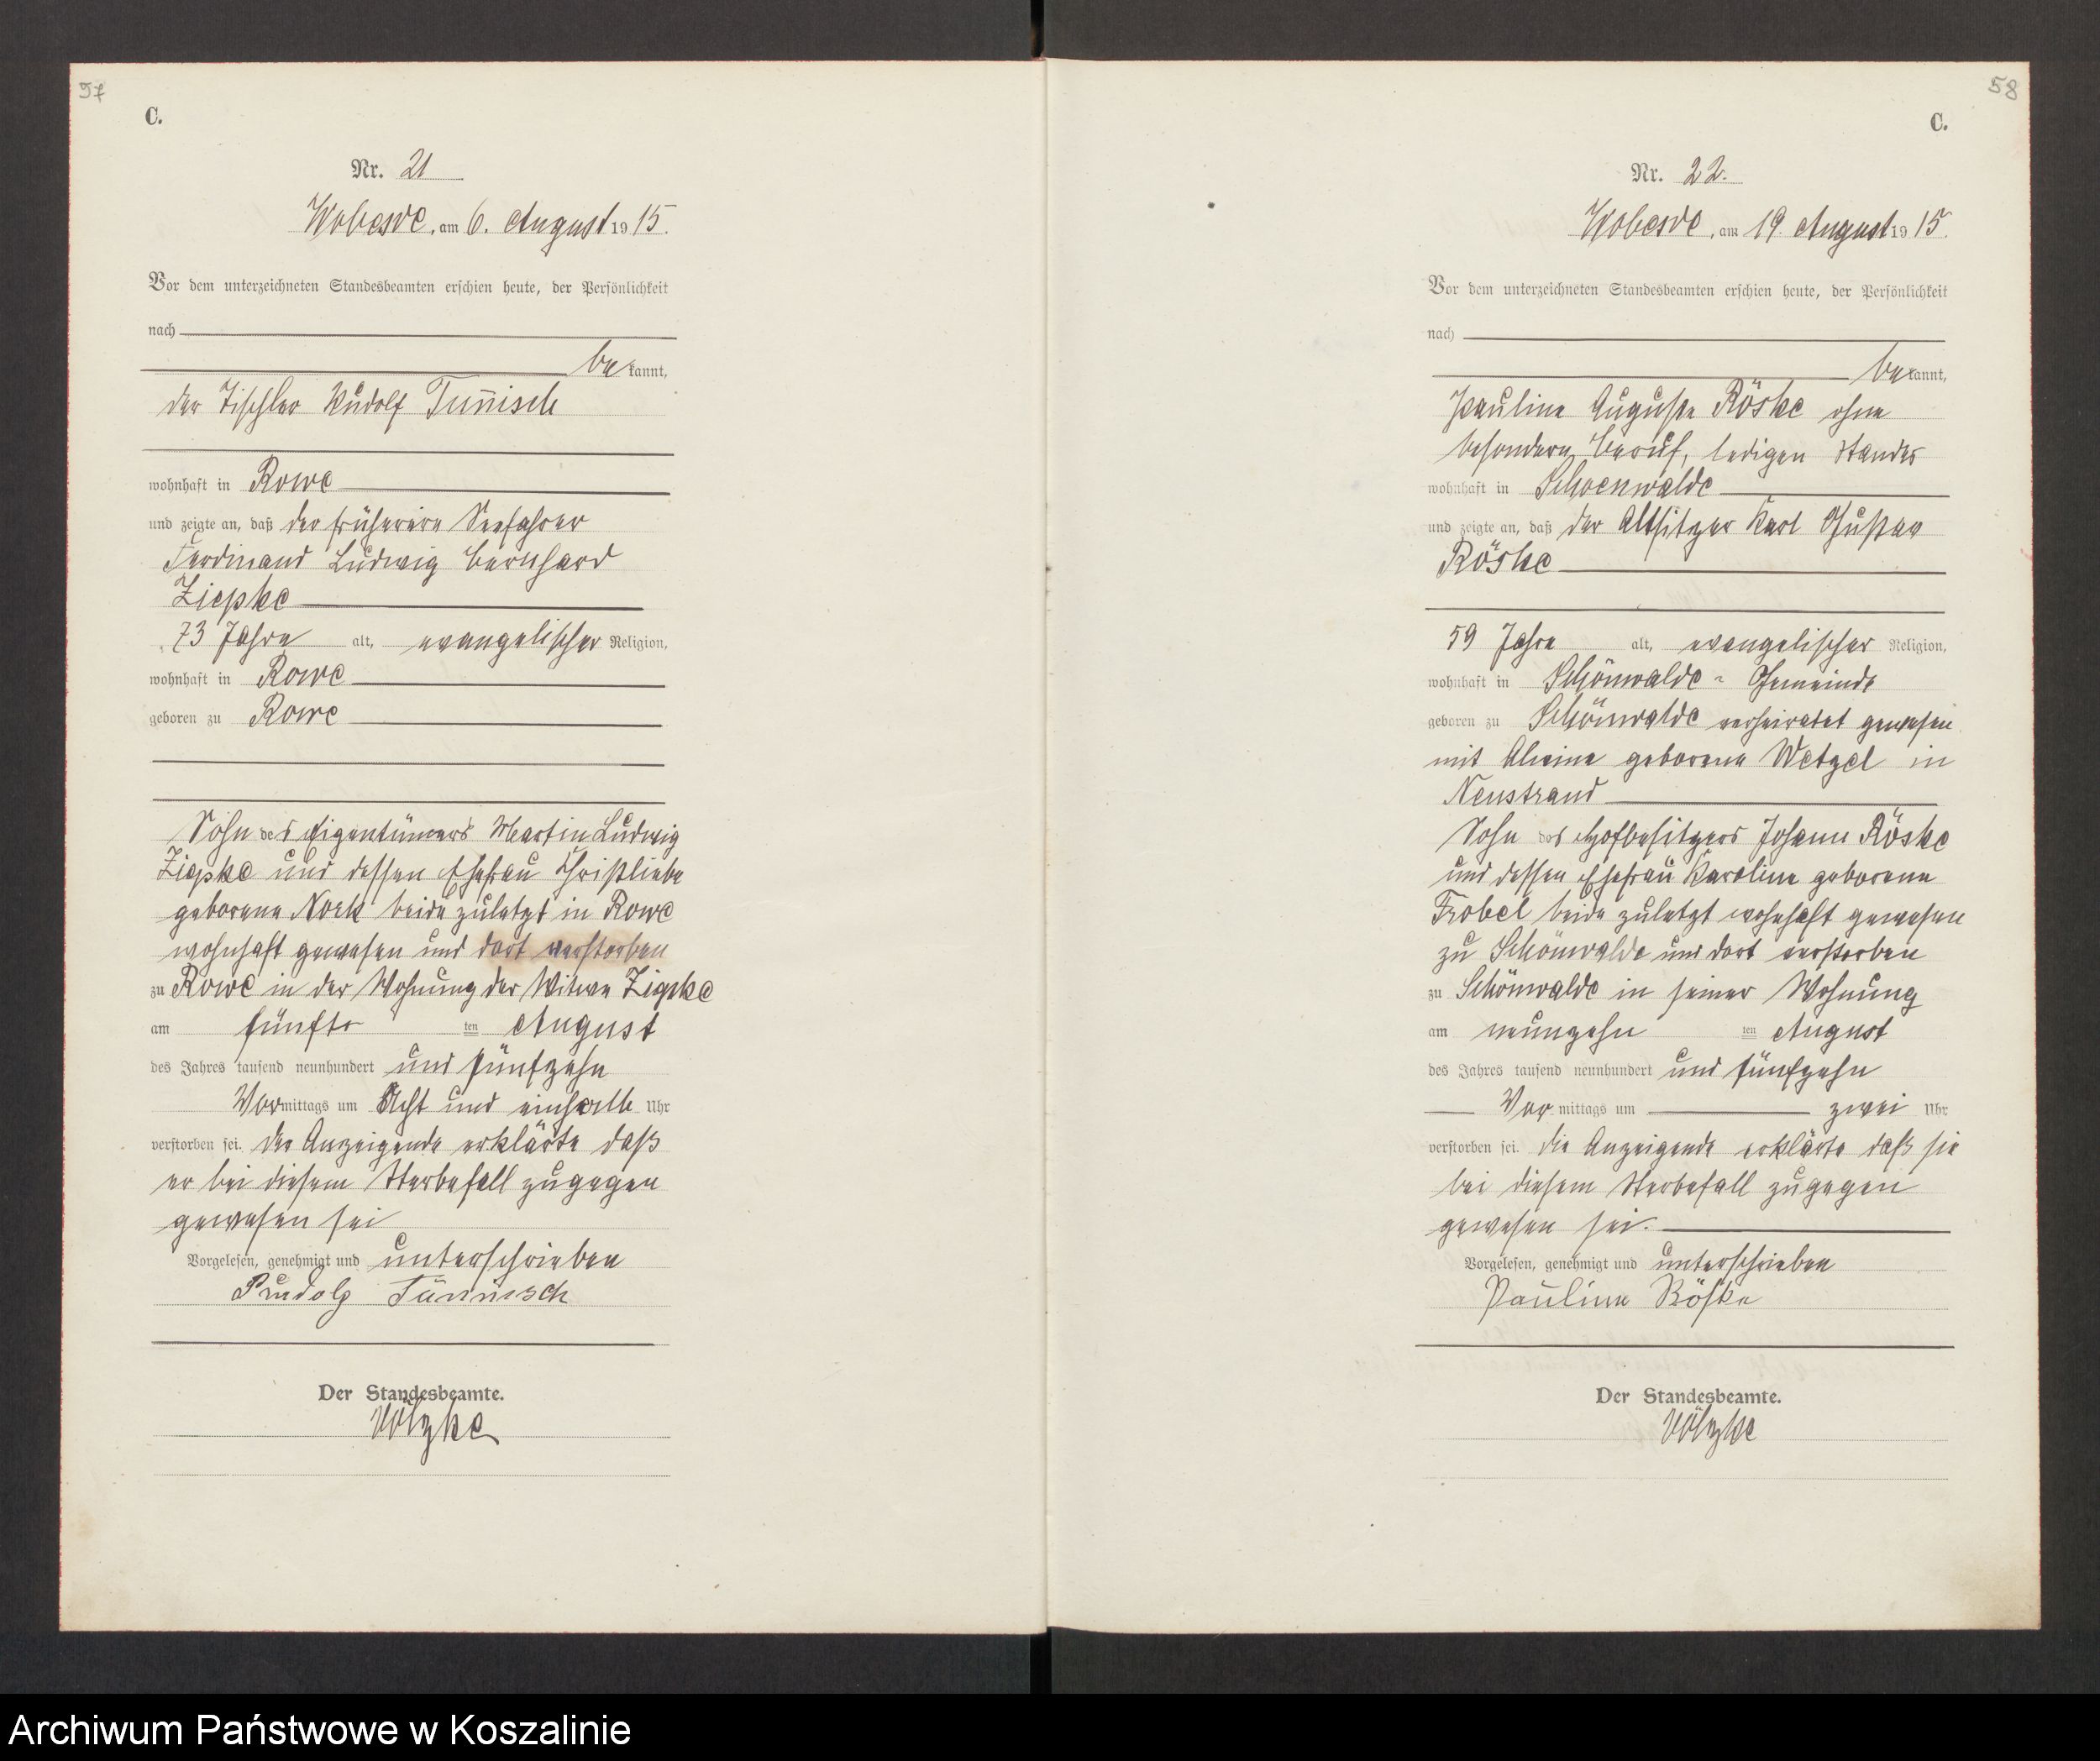 57
C.
Nr. 21
Wobesde, am 6. August 1915.
Vor dem unterzeichneten Standesbeamten erschien heute, der Persönlichkeit
nach
bekannt,
der Tischler Rudolf Tünnisch
wohnhaft in Rowe
und zeigte an, daß der frühere Seefahrer
Ferdinand Ludwig Bernhard
Ziepke
73 Jahre alt, evangelischer Religion,
wohnhaft in Rowe
geboren zu Rowe
Sohn des Eigentümers Martin Ludwig
Ziepke und dessen Ehefrau Christliebe
geborene Nork beide zuletzt in Rowe
wohnhaft gewesen und dort verstorben
zu Rowe in der Wohnung der Witwe Ziepke
am fünften August
des Jahres tausend neunhundert und fünfzehn
Vormittags um Acht und einhalb Uhr
verstorben sei. Der Anzeigende erklärte daß
er bei diesem Sterbefall zugegen
gewesen sei
Vorgelesen, genehmigt und unterschrieben
Rudolf Tünnisch
Der Standesbeamte.
Völzke
58
C.
Nr. 22.
Wobesde, am 19. August 1915.
Vor dem unterzeichneten Standesbeamten erschien heute, der Persönlichkeit
nach
bekannt,
Pauline Auguste Röske ohne
besondern Beruf, ledigen Standes
wohnhaft in Schoenwalde
und zeigte an, daß der Altsitzer Karl Gustav
Röske
59 Jahre alt, evangelischer Religion,
wohnhaft in Schönwalde - Gemeinde
geboren zu Schönwalde verheiratet gewesen
mit Alwine geborene Wetzel in
Neustrand
Sohn des Hofbesitzers Johann Röske
und dessen Ehefrau Karoline geborene
Frobel beide zuletzt wohnhaft gewesen
zu Schönwalde und dort verstorben
zu Schönwalde in seiner Wohnung
am neunzehnten August
des Jahres tausend neunhundert und fünfzehn
Vormittags um zwei Uhr
verstorben sei. Die Anzeigende erklärte daß sie
bei diesem Sterbefall zugegen
gewesen sei.
Vorgelesen, genehmigt und unterschrieben
Pauline Röske
Der Standesbeamte.
Völzke
Archiwum Państwowe w Koszalinie